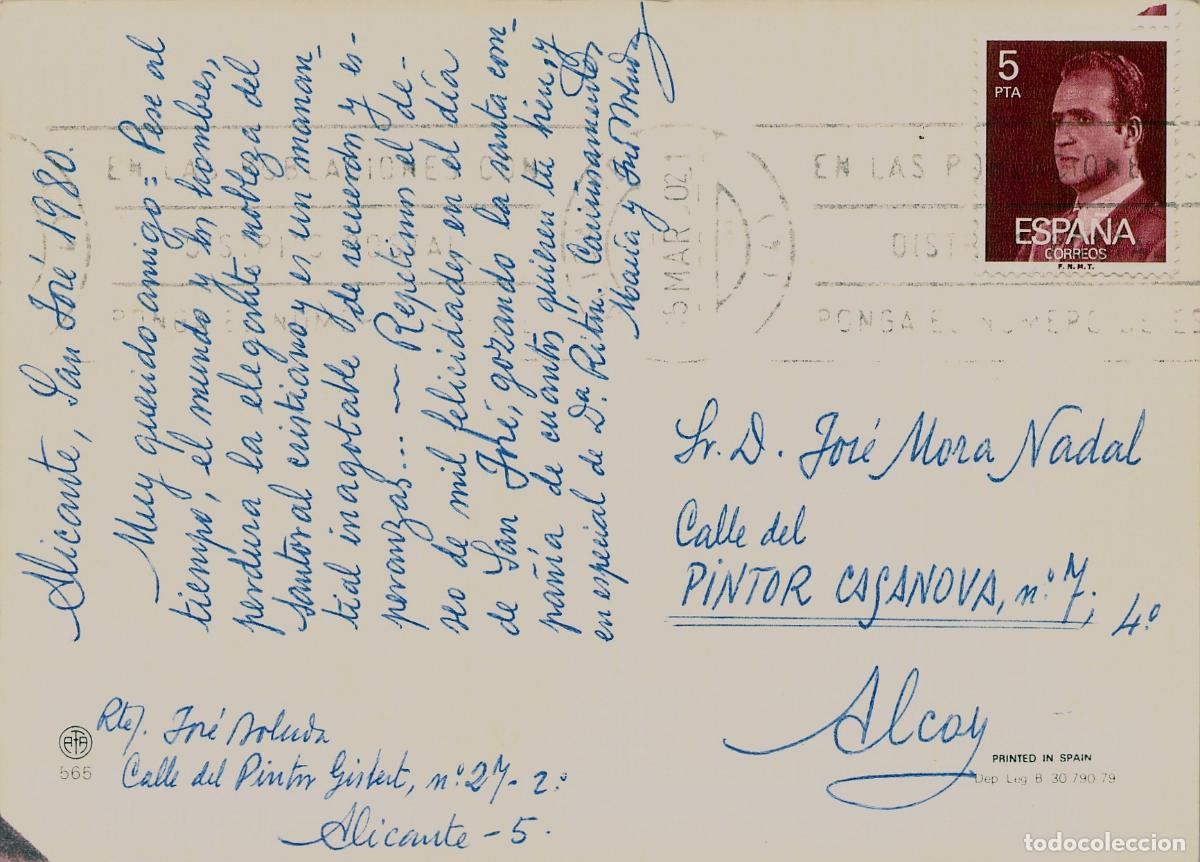 Alicante, San José 1980.
Muy querido amigo = Pese al
tiempo, el mundo y los hombres,
perdura la elegante nobleza del
santoral cristiano y es un manan-
tial inagotable de recuerdos y es-
peranzas... — Repetimos el de-
seo de mil felicidades en el día
de San José, gozando la santa com-
pañía de cuantos quieren tu bien, y
en especial de Dª Ritín. Cariñosamente,
María y José Boluda
5
PTA
ESPAÑA
CORREOS
F.N.M.T.
EN LAS POBLACIONES CON
DISTRITO POSTAL
PONGA EL NUMERO
MAR
EN LAS POBLACIONE
DIST
PONGA EL NUMERO DE ES
Sr. D. José Mora Nadal
Calle del
PINTOR CASANOVA, nº 7,
4º
Alcoy
Rte/. José Boluda
Calle del Pintor Gisbert, nº 27 - 2º
Alicante - 5.
ATA
565
PRINTED IN SPAIN
Dep Leg B 30 790 79
todocoleccion